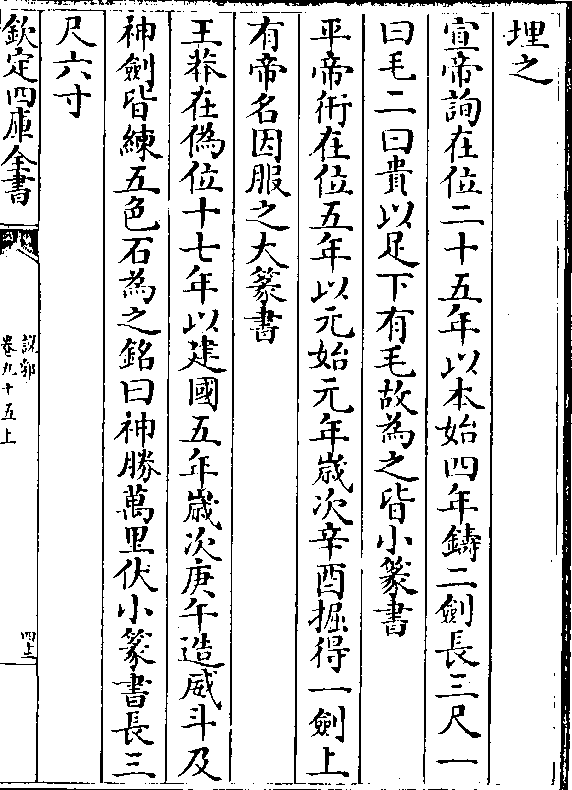 埋之
宣帝詢在位二十五年以本始四年鑄二劍長三尺一
曰毛二曰貴以足下有毛故為之皆小篆書
平帝衎在位五年以元始元年嵗次辛酉掘得一劍上
有帝名因服之大篆書
王莽在偽位十七年以建國五年嵗次庚午造威斗及
神劍皆練五色石為之銘曰神勝萬里伏小篆書長三
尺六寸
欽定四庫全書
說郛
卷九十五上